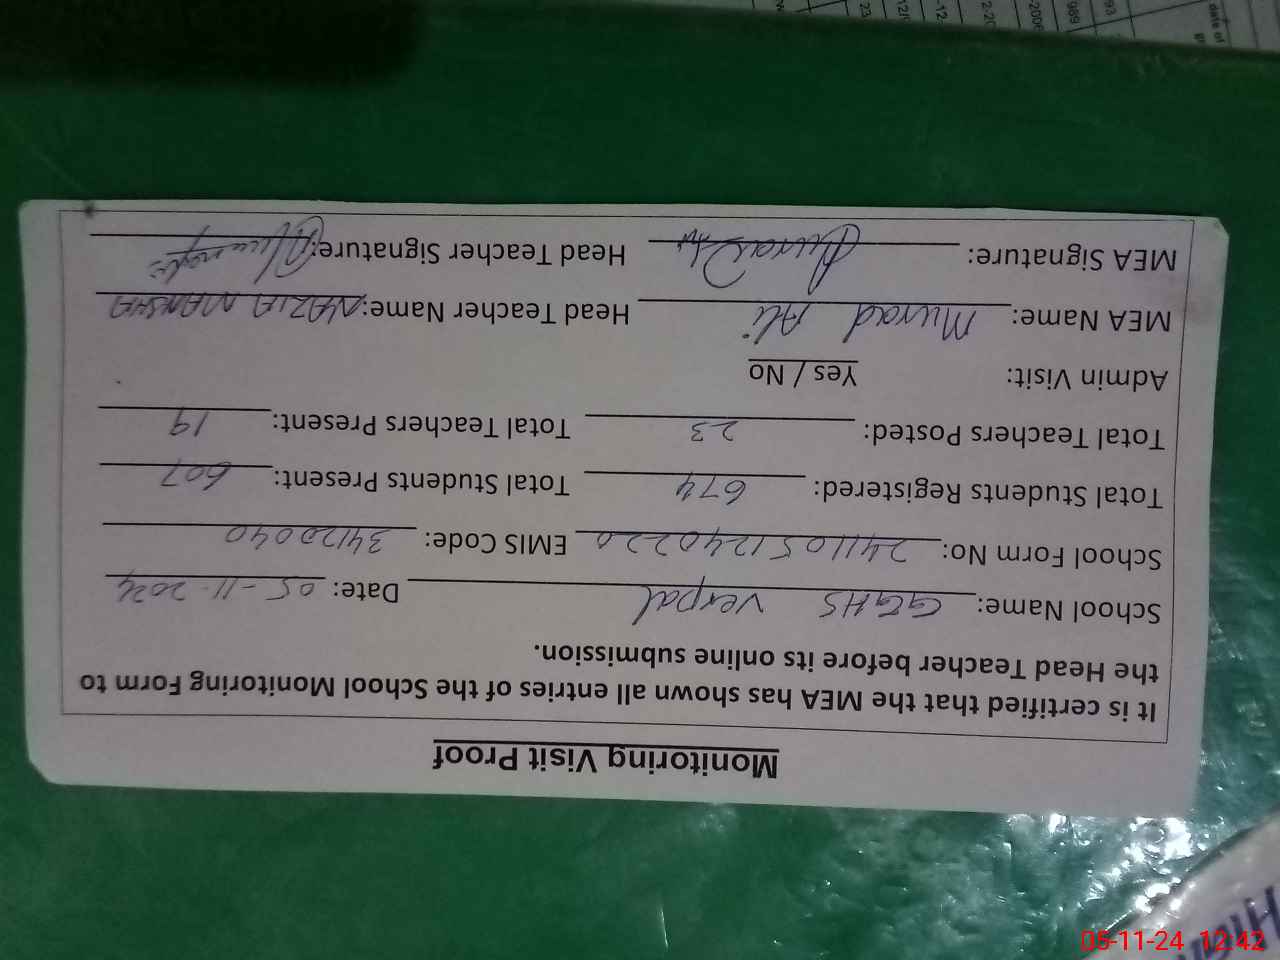 Monitoring Visit Proof
It is certified that the MEA has shown all entries of the School Monitoring Form to
the Head Teacher before its online submission.
School Name: GGHS Verpal Date: 05-11-2024
School Form No: 2411051240220 EMIS Code: 34120040
Total Students Registered: 674 Total Students Present: 607
Total Teachers Posted: 23 Total Teachers Present: 19
Admin Visit: Yes / No
MEA Name: Murad Ali Head Teacher Name: NAZIA MANSHA
MEA Signature: Head Teacher Signature:
05-11-24 12:42